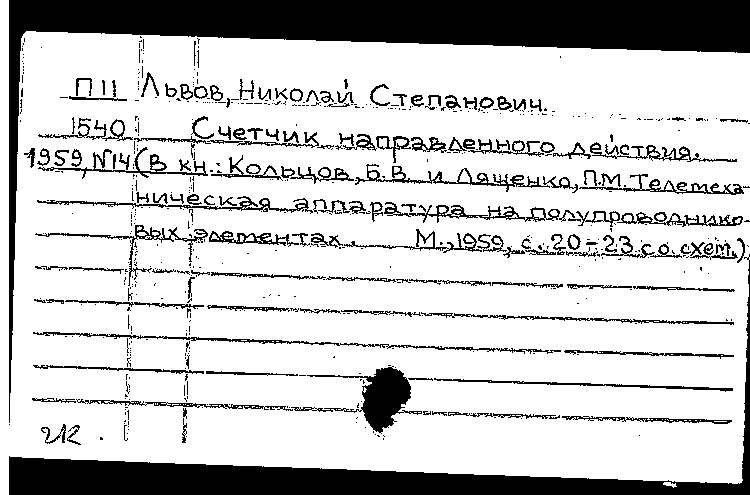 П11 Львов, Николай Степанович.
1540 Счетчик направленного действия.
1959, N14 (В кн.: Кольцов, Б.В. и Лященко, П.М. Телемеха-
ническая аппаратура на полупроводнико-
вых элементах. М., 1959, с. 20-23 со схем.)
212.